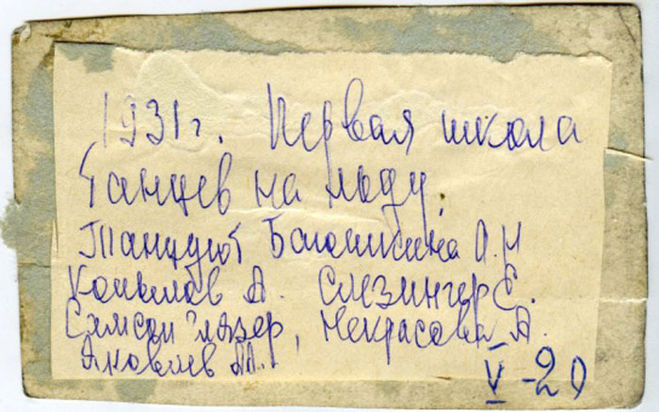 1931г. Первая школа
танцев на льду.
Танцуют Балашкина А.Н
Копылов А. Слезингер Е.
Самсон Глязер, Некрасова А.
Яковлев М.
V-20